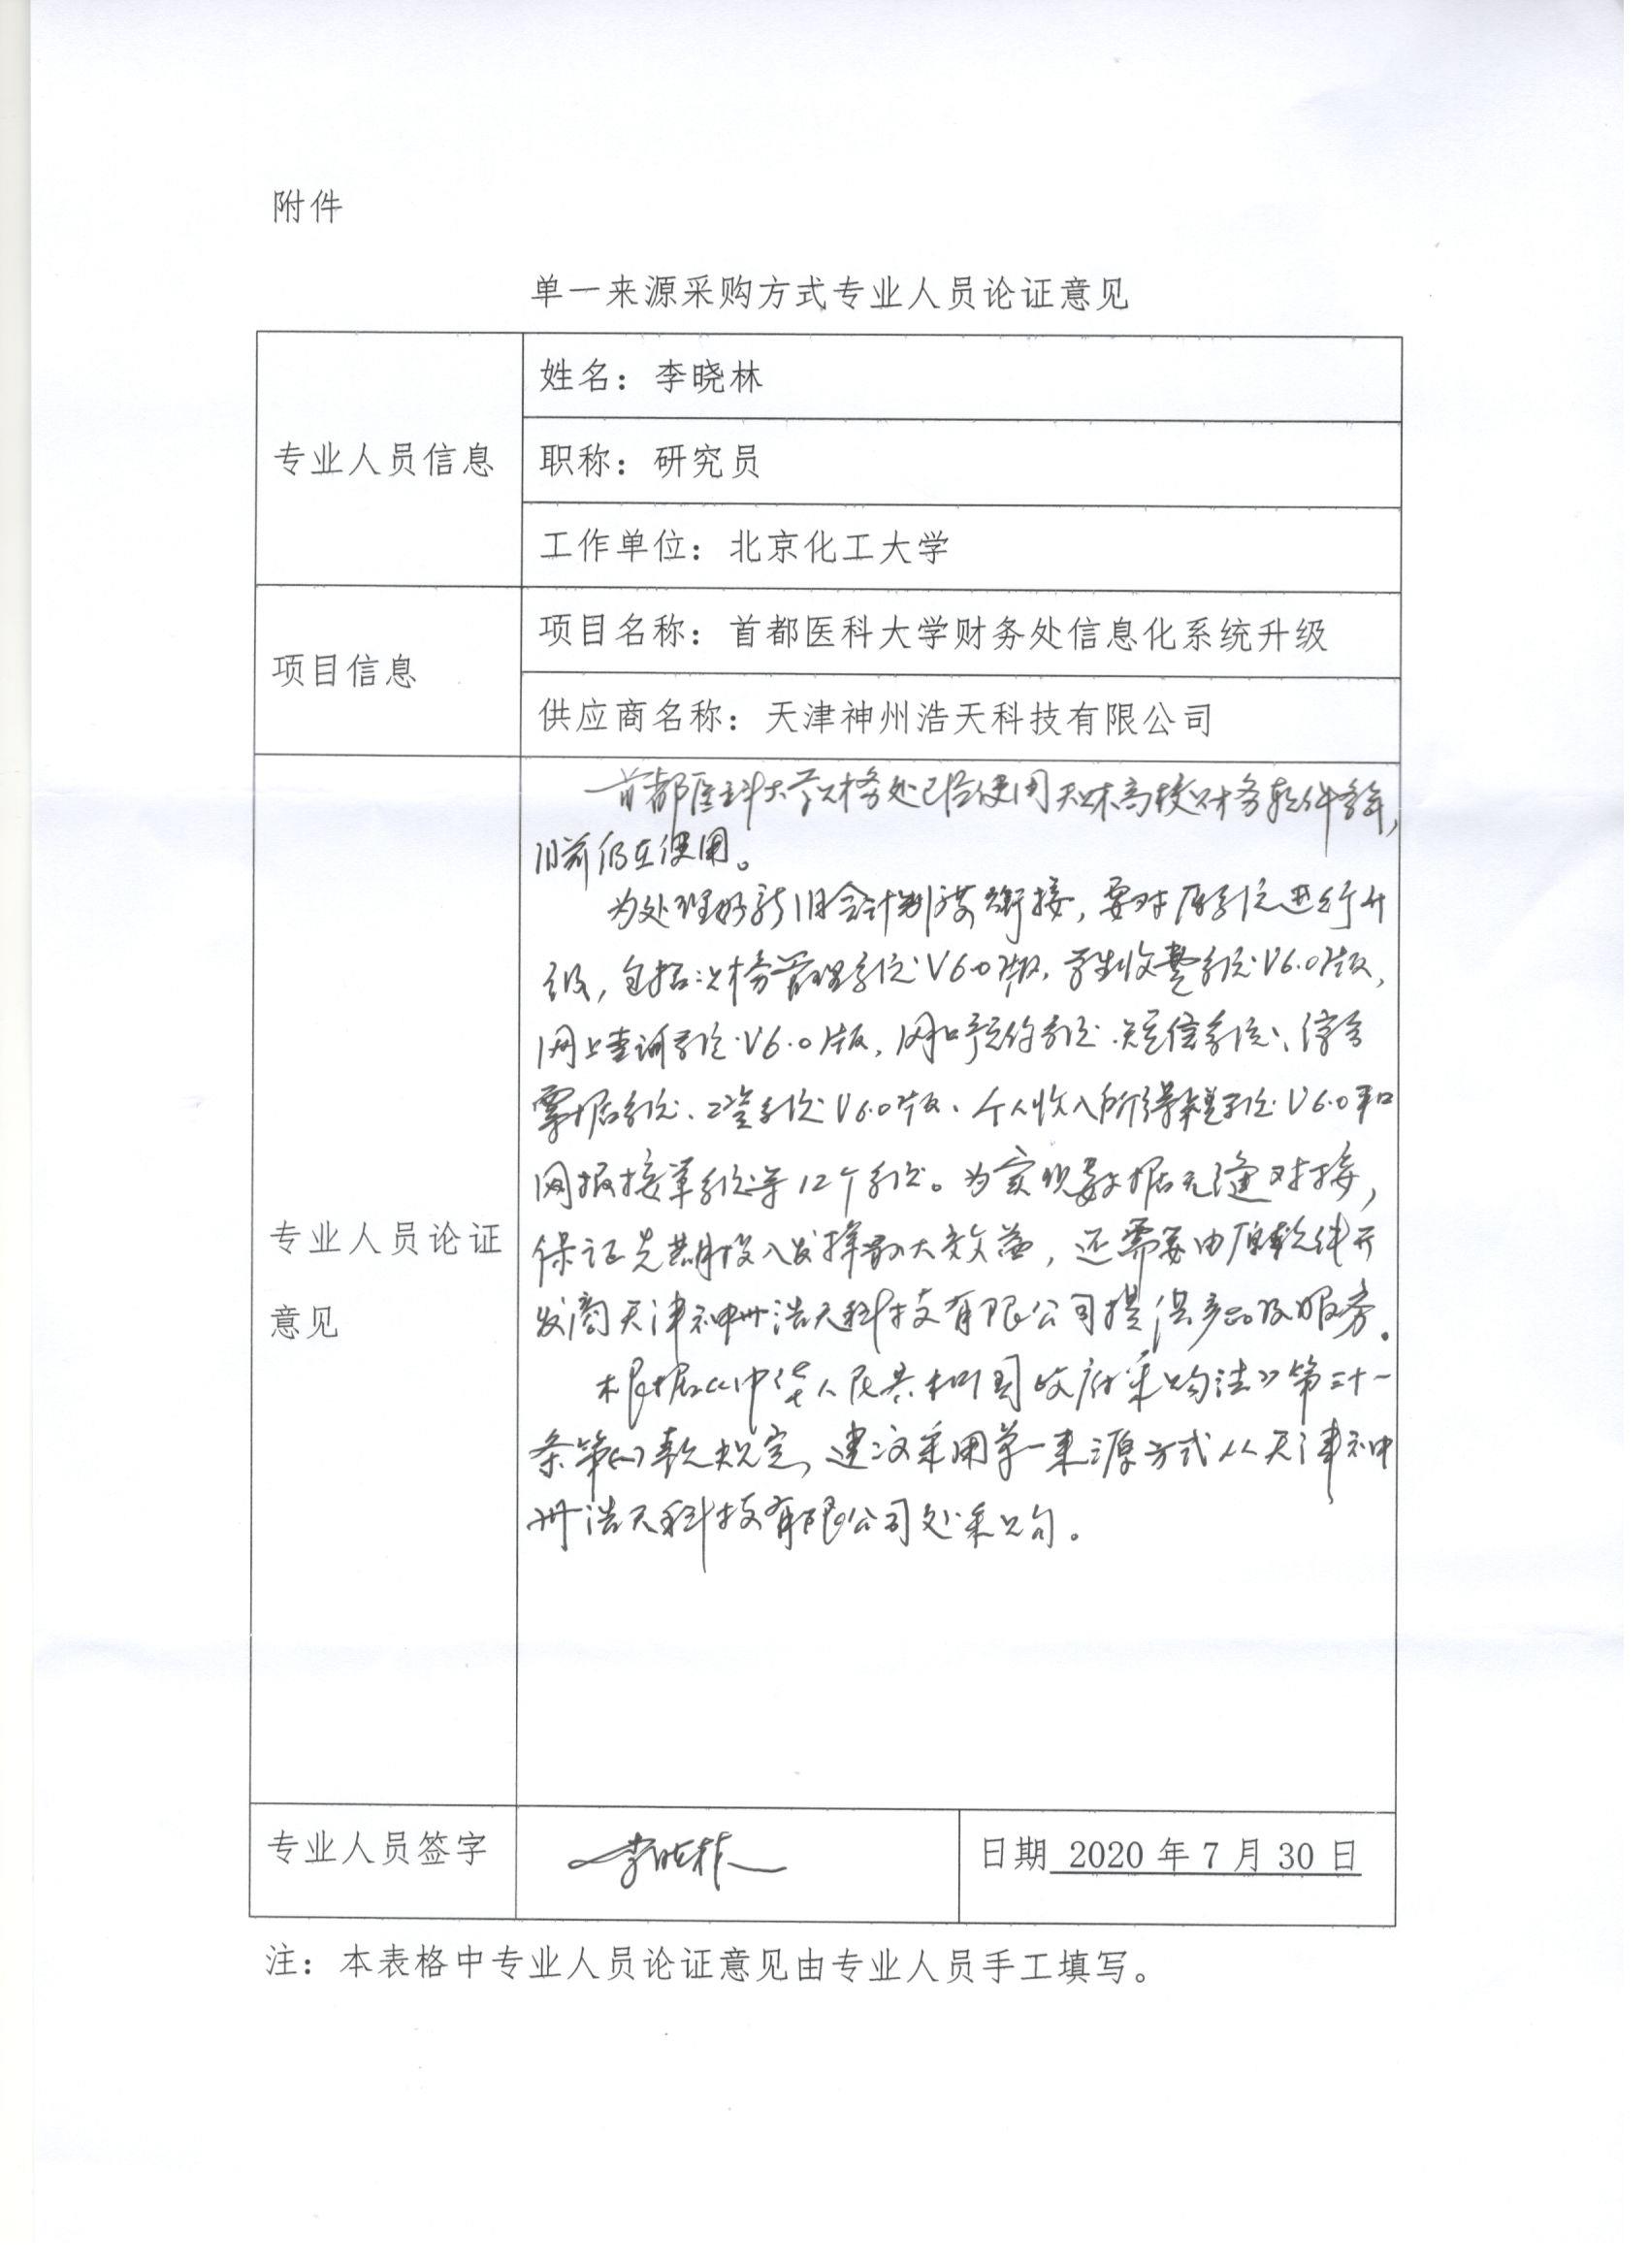 附件
单一来源采购方式专业人员论证意见
专业人员信息
姓名：李晓林
职称：研究员
工作单位：北京化工大学
项目信息
项目名称：首都医科大学财务处信息化系统升级
供应商名称：天津神州浩天科技有限公司
专业人员论证
意见
首都医科大学财务处已经使用天财高校财务软件多年，
目前仍在使用。
为处理好新旧会计制度衔接，要对原系统进行升
级，包括财务管理系统V6.0版，学生收费系统V6.0版，
网上查询系统V6.0版，网上预约系统、短信系统、
票据系统、工资系统V6.0版、个人收入所得税系统V6.0和
网报接单系统等12个系统。为实现数据无缝对接，
保证先期投入发挥最大效益，还需要由原软件开
发商天津神州浩天科技有限公司提供产品及服务。
根据《中华人民共和国政府采购法》第三十一
条第(一)款规定，建议采用单一来源方式从天津神
州浩天科技有限公司处采购。
专业人员签字
李晓林
日期 2020 年 7 月 30 日
注：本表格中专业人员论证意见由专业人员手工填写。